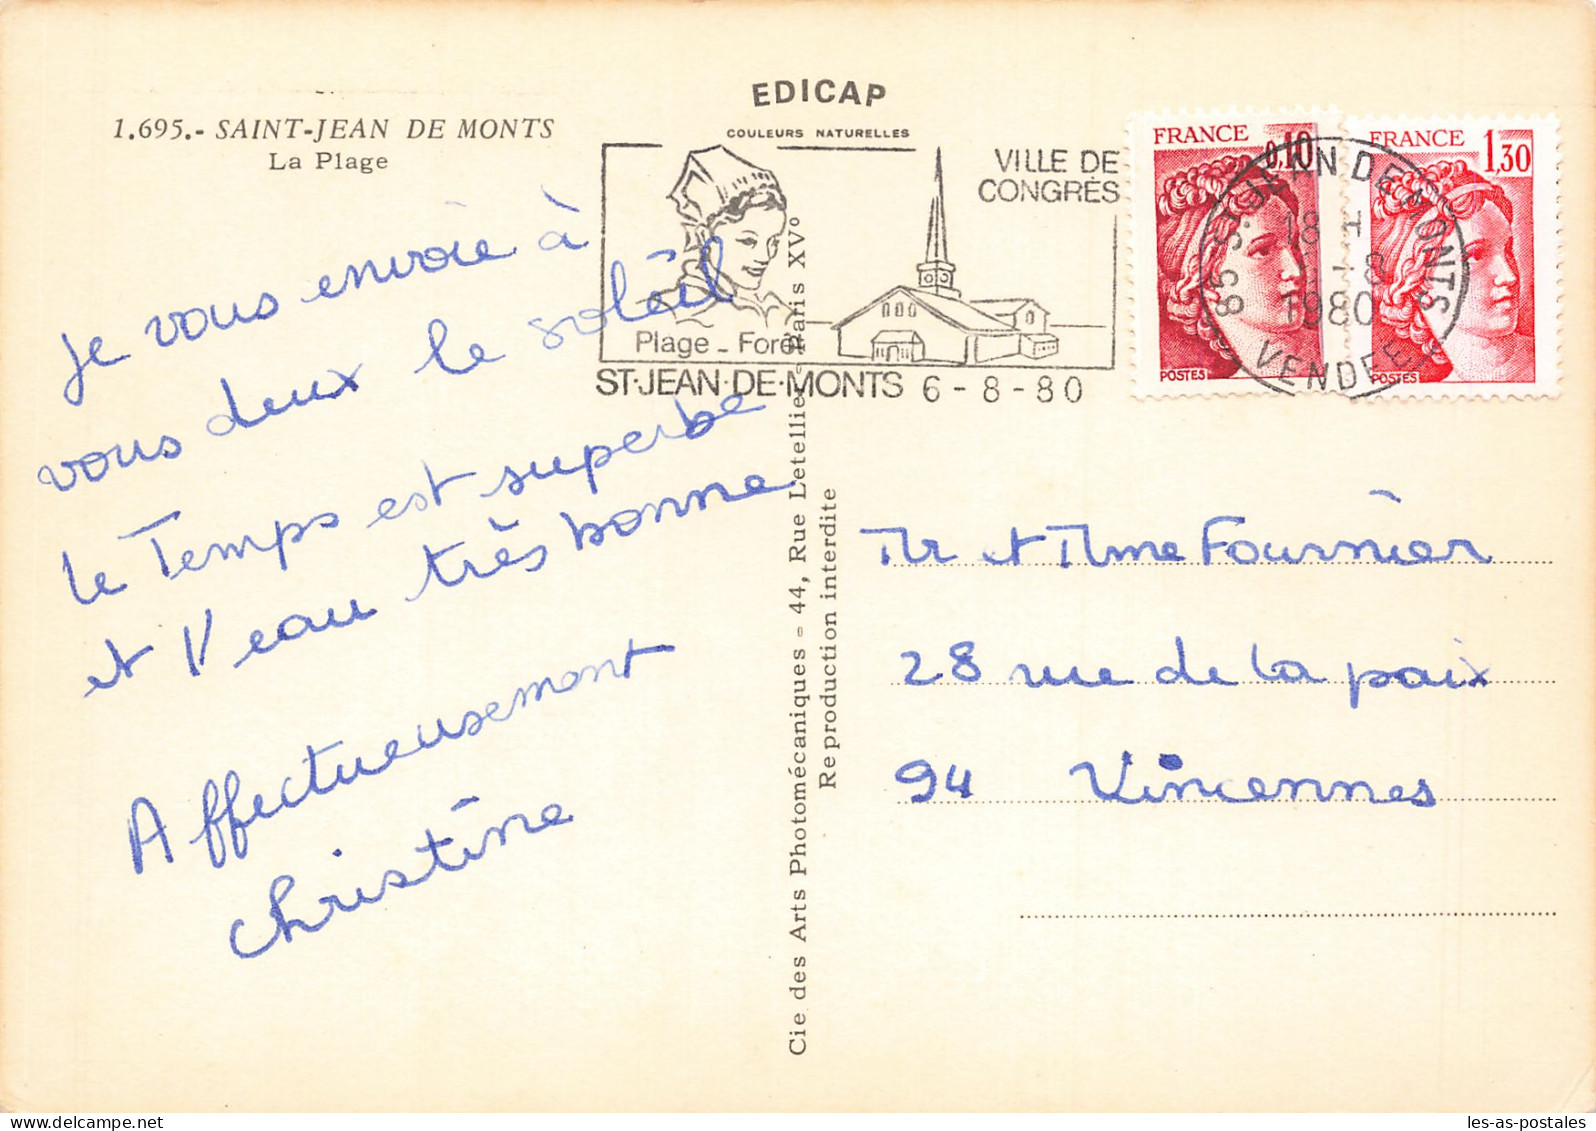 1.695.- SAINT-JEAN DE MONTS
La Plage
EDICAP
COULEURS NATURELLES
VILLE DE
CONGRÈS
Plage - Forêt
ST·JEAN·DE·MONTS 6-8-80
FRANCE 0,10
POSTES
FRANCE 1,30
POSTES
85 ST·JEAN DE MONTS
18 H
1980
VENDEE
je vous envoie à
vous deux le soleil
le Temps est superbe
et l'eau très bonne
Affectueusement
Christine
Cie des Arts Photomécaniques - 44, Rue Letellier - Paris XVº
Reproduction interdite
Mr et Mme Fournier
28 rue de la paix
94 Vincennes
les-as-postales